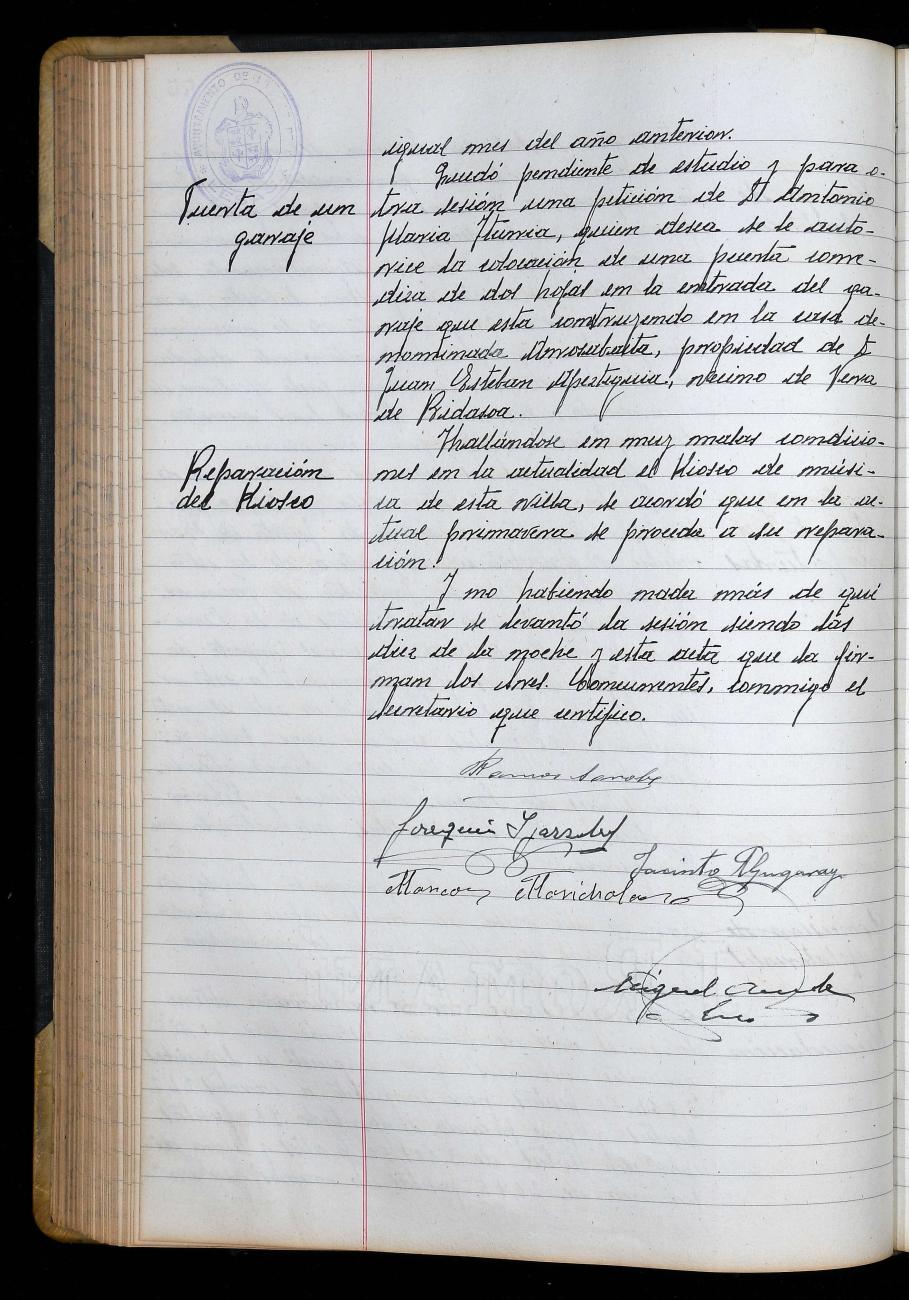 AYUNTAMIENTO DE
igual mes del año anterior.
Quedó pendiente de estudio y para o-
Puerta de un garaje
tra sesión una petición de Dn Antonio
Maria Iturria, quien desea se le auto-
rice la colocación de una puerta corre-
diza de dos hojas en la entrada del ga-
raje que esta construyendo en la casa de-
nominada, propiedad de D
Juan Esteban Apezteguia, vecino de Vera
de Bidasoa.
Hallándose en muy malas condicio-
Reparación
del Kiosco
nes en la actualidad el Kiosco de músi-
ca de esta villa, se acordó que en la ac-
tual primavera se proceda a su repara-
ción.
Y no habiendo nada más de qué
tratar se levantó la sesión siendo las
diez de la noche y esta acta que la fir-
man los Sres. Concurrentes, conmigo el
secretario que certifico.
Ramos
Joaquin
Jacinto
Marcos Marichalar
Miguel